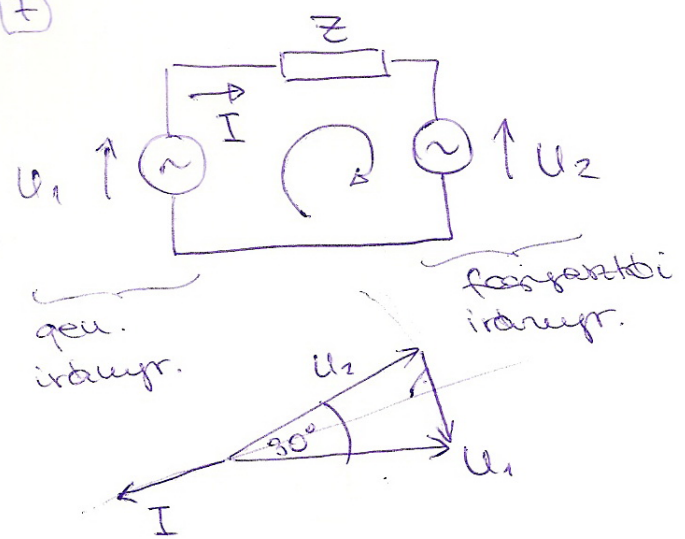 7
Z
I
U1
~
~
U2
gen.
irányr.
fogyasztói
irányr.
U2
30°
U1
I